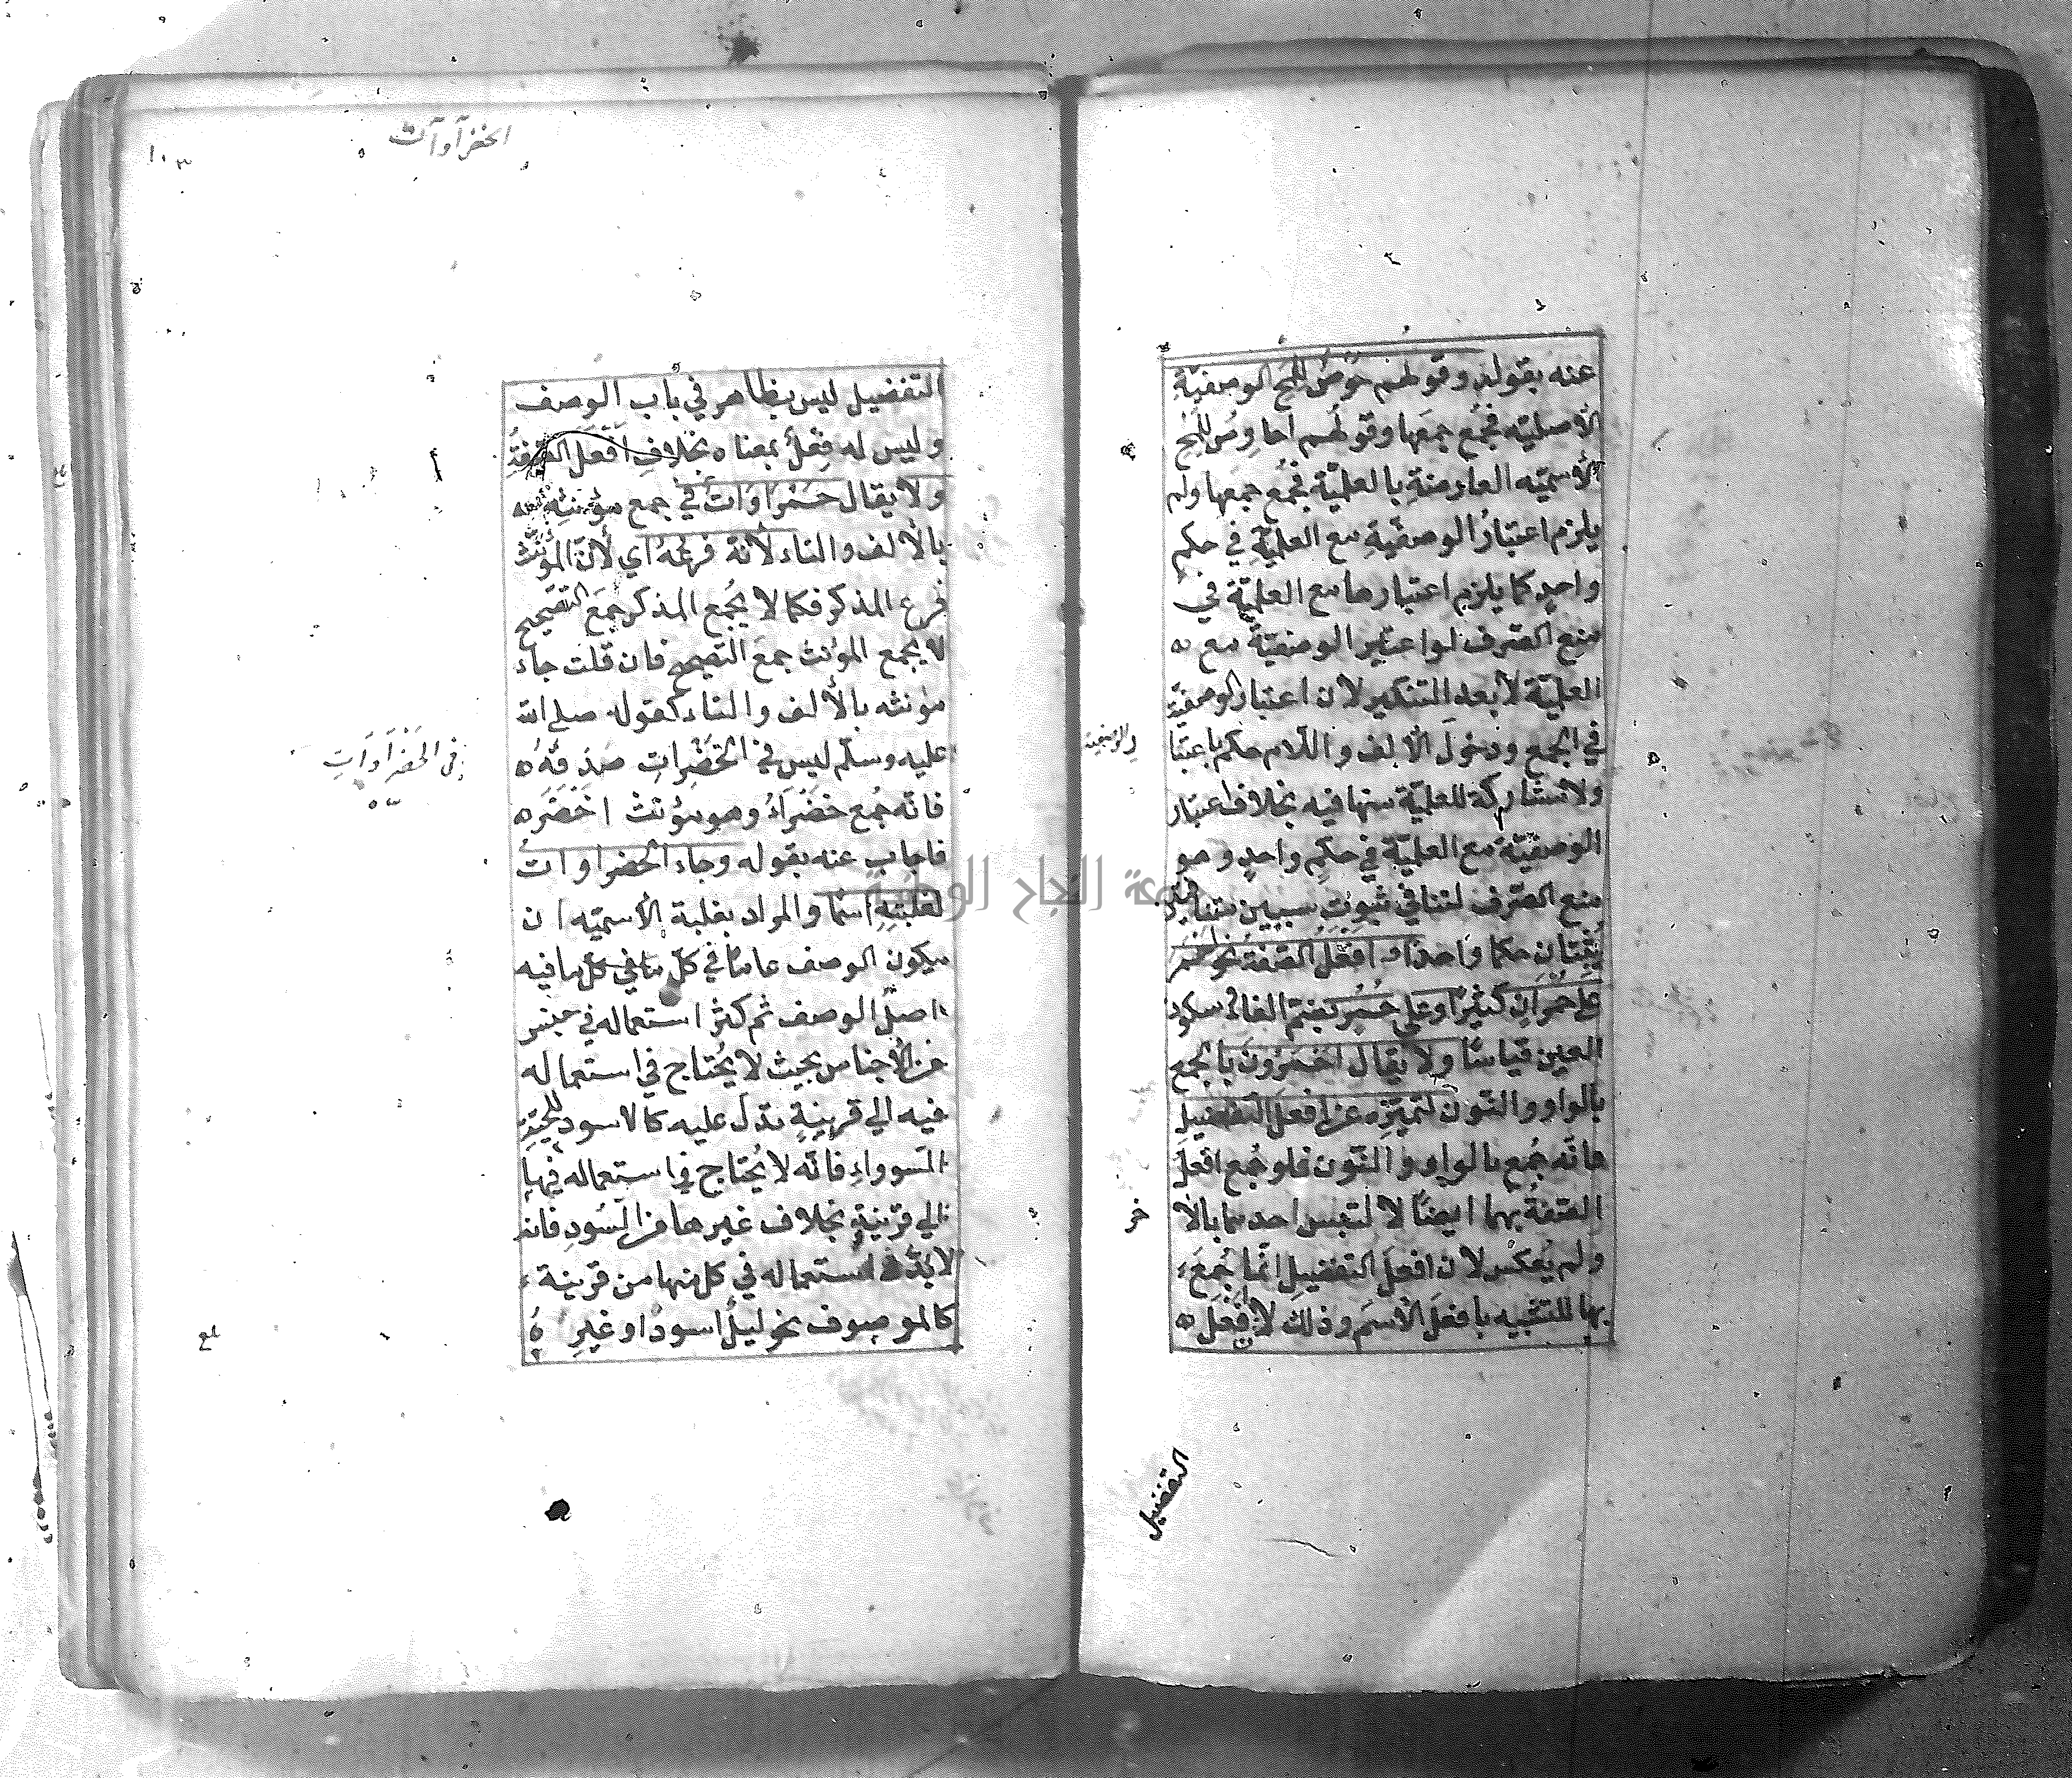 عنه بقوله وقولهم حُوصٌ للمح الوصفيّةِ
الأصليّه فجُمع جمعَها وقولُهم احاوِصُ للمح
الأسميّه العارضةِ بالعلميّة فجُمع جمعها ولم
يلزم اعتبارُ الوصفيّةِ مع العلميّةِ في حكم
واحدٍ كما يلزم اعتبارها مع العلميّة في
منع الصّرف لو اعتبر الوصفيّةُ مع ه
العلميّة لا بعد التنكير لان اعتبار الوصفيّة
في الجمع ودخولَ الألف واللّام حكم باعتبا
والوصفية
ولا مشاركة للعلميّة منها فيه بخلاف اعتبار
الوصفيّة مع العلميّة في حكمٍ واحدٍ وهو
منع الصّرف لتنافي ثبوتِ سببين متنافيين
يُثبتان حكما واحدا و افعلُ الصّفةُ نحو احمر
على حُمْرانٍ كثيرًا وعلى حُمْرٍ بضم الفاء وسكون
العين قياسًا ولا يقال احْمَرُونَ بالجمع
بالواو والنّون لتميّزه عن افعل التفضيل
فانّه جُمِع بالواو والنّون فلو جُمع افعل
الصّفةُ بهما ايضًا لا لتبس احدهما بالاَ
خر
ولم يُعكس لان افعلَ التفضيلِ انّما جُمِعَ
بها للتشبيه بافعلَ الأسم وذلك لانّ افعل ه
التفضيل
الخضرآوآت
١٠٣
التفضيل ليس بظاهر في باب الوصف
وليس له فعلٌ بمعناه بخلافِ افعَلَ الصّفةُ
ولا يقال حَمْراوَاتٌ في جمع مؤنثِهِ
بالألف والتاء لأنّه فرعُهُ اي لأنّ المؤنّث
فرع المذكر فكما لا يُجمع المذكر جمعَ التصّحيح
لا يجمع المؤنث جمعَ التّصحيح فان قلت جاء
مؤنثه بالألف والتاء كقوله صلى الله
عليه وسلّم ليس في الخَضْراتِ صَدَقةٌ ه
في الخَضْرآوَاتِ
فانّه جُمِع خضْراءُ وهو مؤنث اخضر ه
فاجاب عنه بقوله وجاء الخضراواتُ
لغلبتِهِ اسمًا والمراد بغلبة الأسميّه ان
يكون الوصف عامّا في كلّ ما في كلّ ما فيه
اصلُ الوصف ثم كثر استعماله في جنس
من الأجناس بحيث لا يُحتاج في استعماله
فيه الي قرينةٍ تدلّ عليه كالاسود للحيّة
السّوداءِ فانّه لا يُحتاج في استعماله فيها
الي قرينةٍ بخلاف غيرها من السُّودِ فانه
لا بُدَّ في استعماله في كل منها من قرينة
كالموصوف نحو ليلٌ اسودُ او غيرِه
بلغ